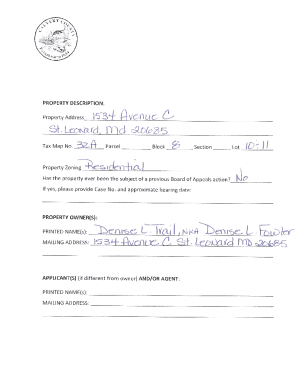 CALVERT COUNTY
PROPERTY DESCRIPTION:
Property Address 1534 Avenue C
St. Leonard, Md 20685
Tax Map No. 32A Parcel Block 8 Section Lot 10-11
Property Zoning Residential
Has the property ever been the subject of a previous Board of Appeals action? No
If yes, please provide Case No. and approximate hearing date:
PROPERTY OWNER(S):
PRINTED NAME(s): Denise L Trail, NKA Denise L Fowler
MAILING ADDRESS: 1534 Avenue C St. Leonard MD 20685
APPLICANT(S) (if different from owner) AND/OR AGENT:
PRINTED NAME(s):
MAILING ADDRESS: